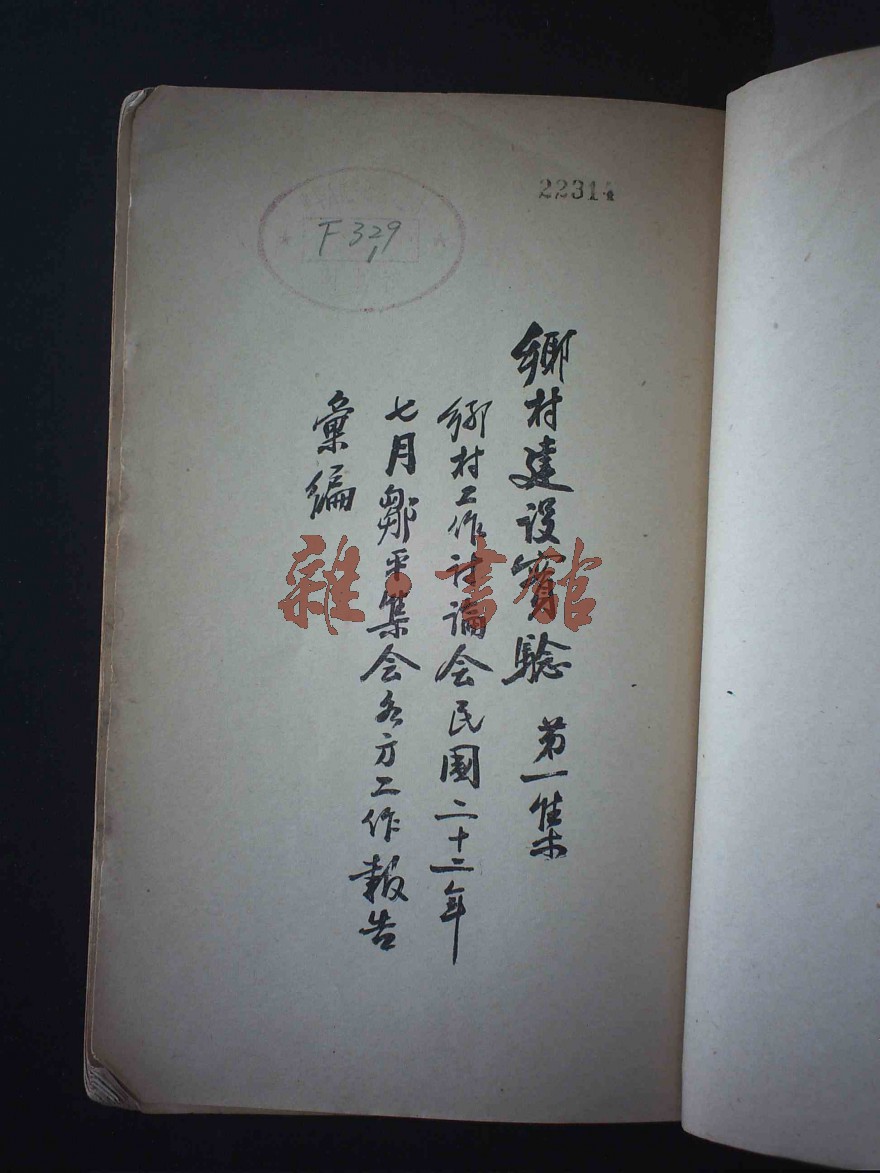 22314
F329
1
鄉村建设實驗 第一集
鄉村工作討論会民國二十二年
七月鄒平集会各方工作報告
彙编
雜·書館